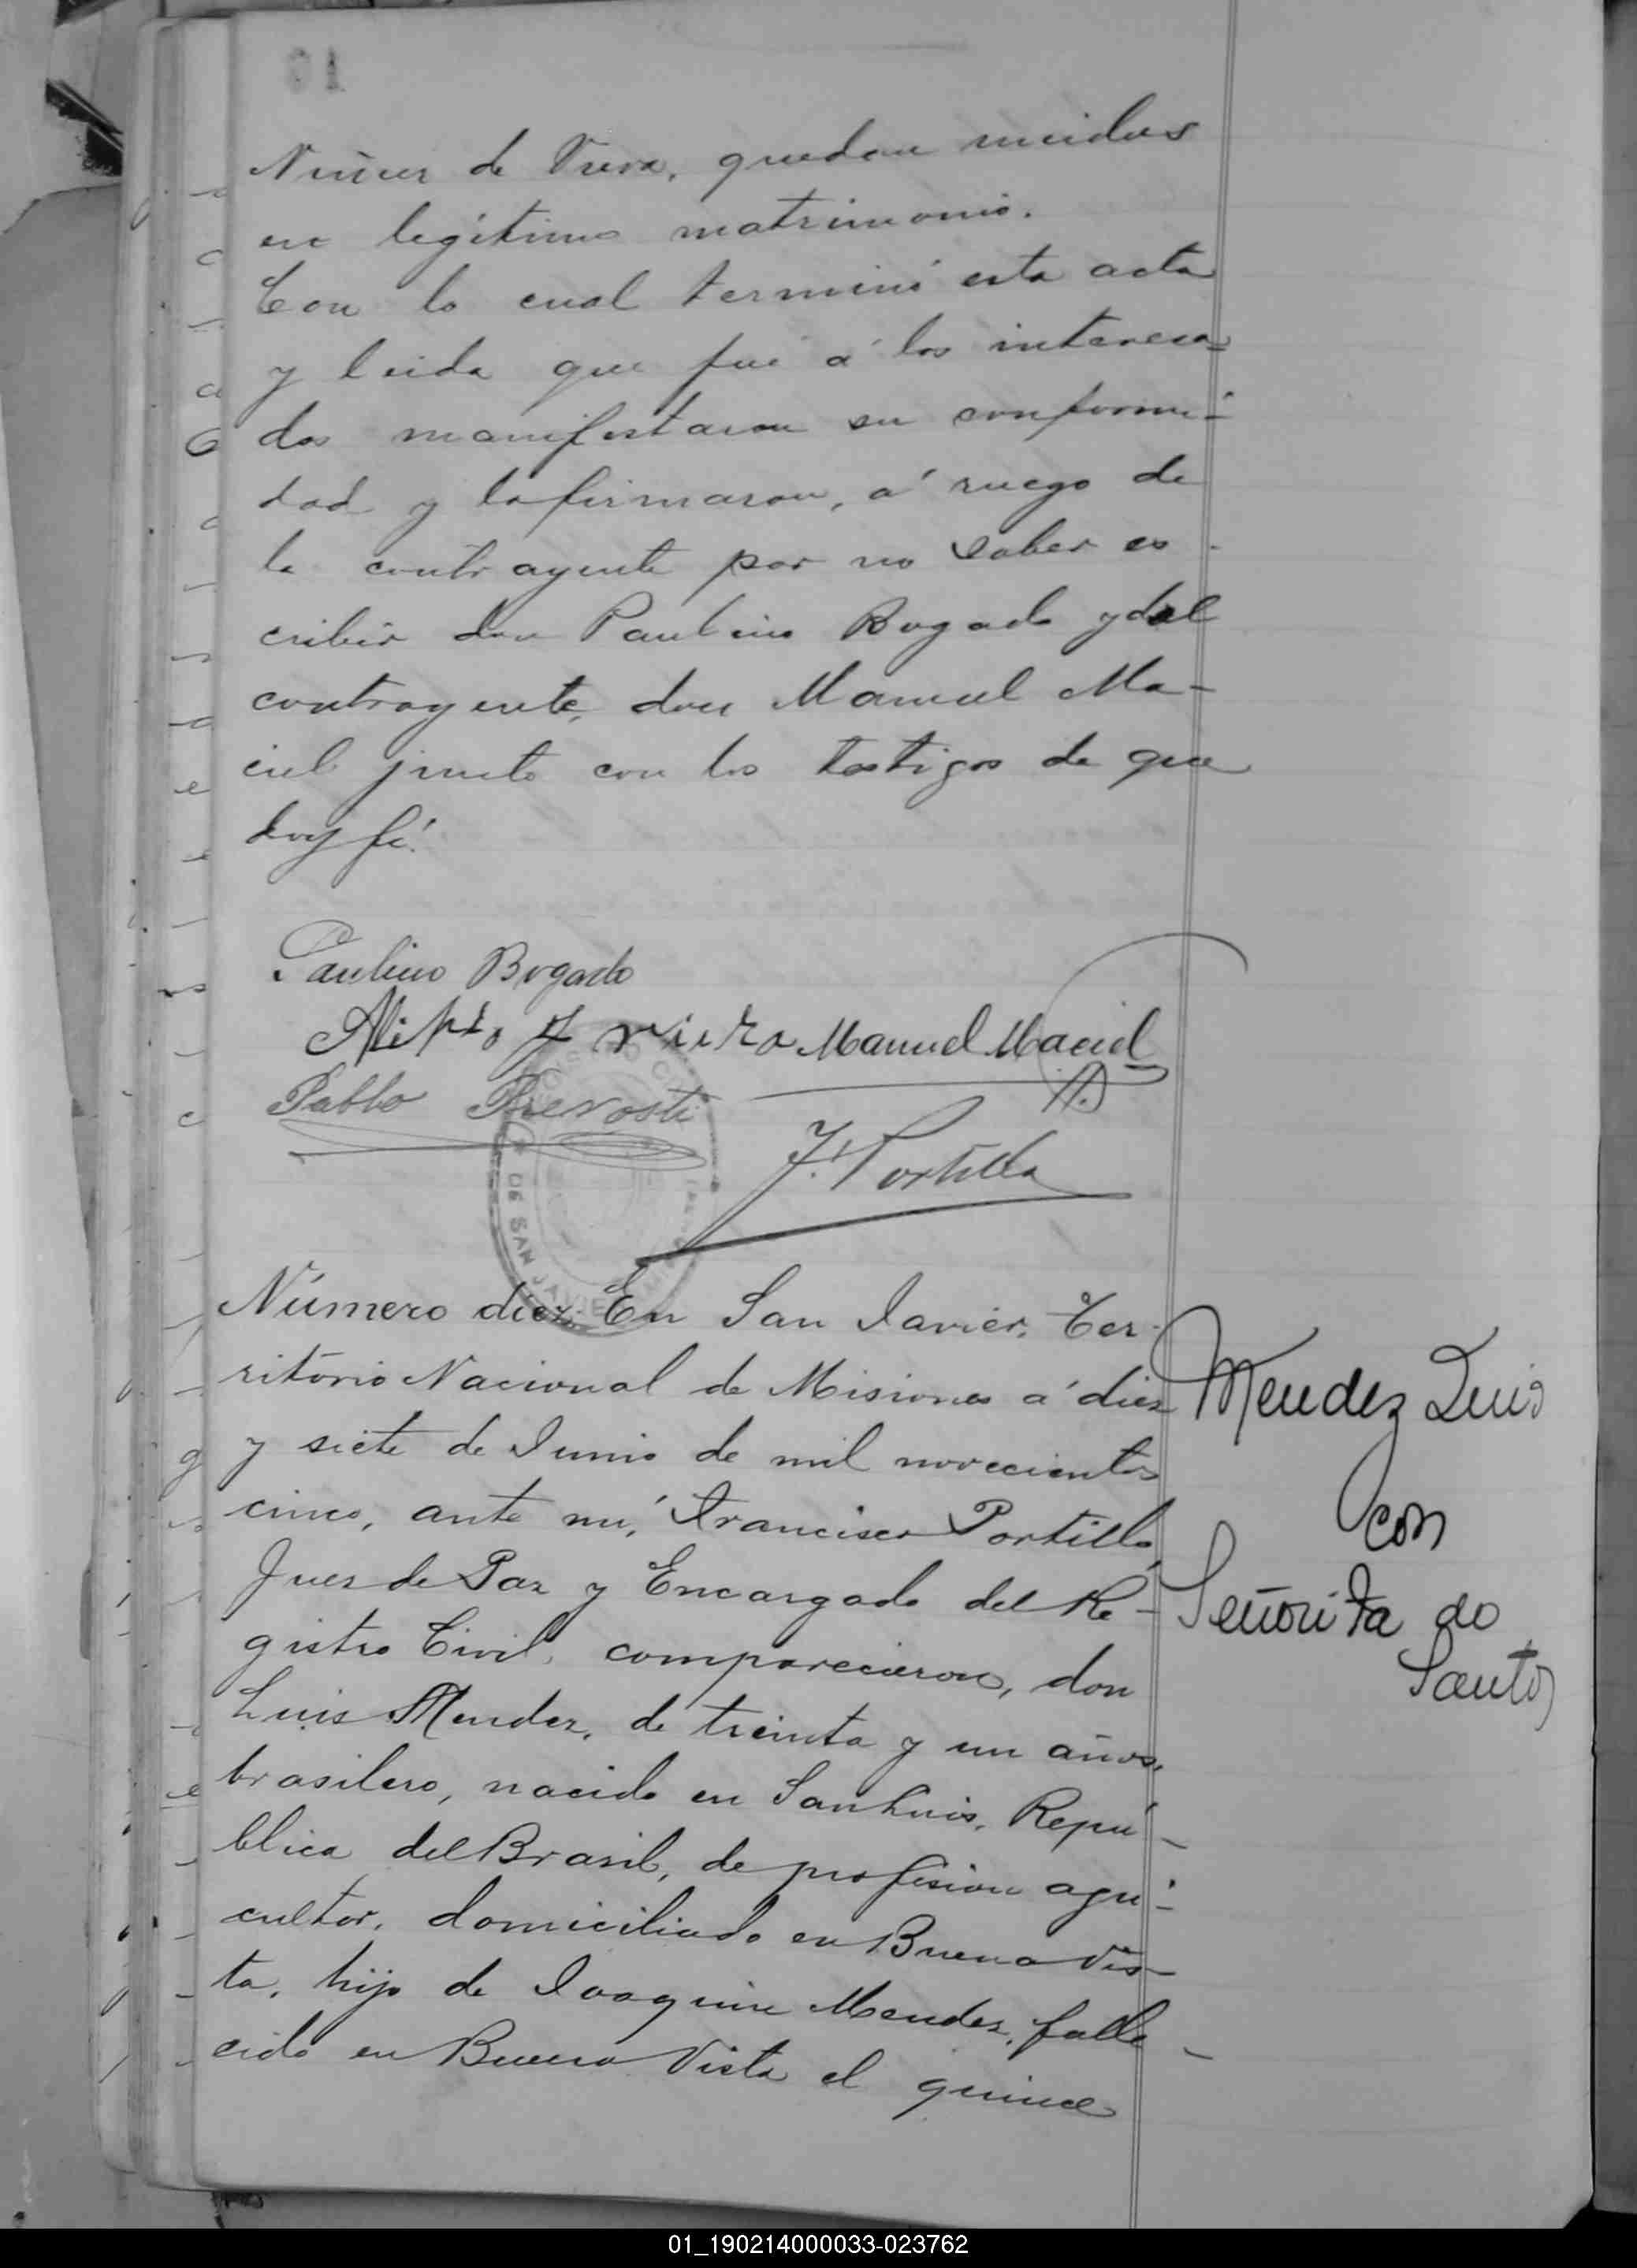 01
Nuñez de Viera, quedan unidos
en legítimo matrimonio.
Con lo cual terminó esta acta
y leida que fué á los interesa=
dos manifestaron su conformi-
dad y la firmaron, á ruego de
la contrayente por no saber es-
cribir don Paulino Bogado y del
contrayente, don Manuel Ma-
ciel junto con los testigos de que
doy fé.
Paulino Bogado
Manuel Maciel
Pablo Prevosti
F. Portillo
DE SAN JAVIER
Número diez. En San Javier, Ter-
ritorio Nacional de Misiones á diez
y siete de Junio de mil novecientos
cinco, ante mí, Francisco Portillo,
Juez de Paz y Encargado del Re-
gistro Civil, comparecieron, don
Luis Mendez, de treinta y un años,
brasilero, nacido en San Luis, Repú-
blica del Brasil, de profesion agri-
cultor, domiciliado en Buena Vis-
ta, hijo de Joaquin Mendez, falle-
cido en Buena Vista el quince
Mendez Luis
con
Señorita do
Santos
01_190214000033-023762